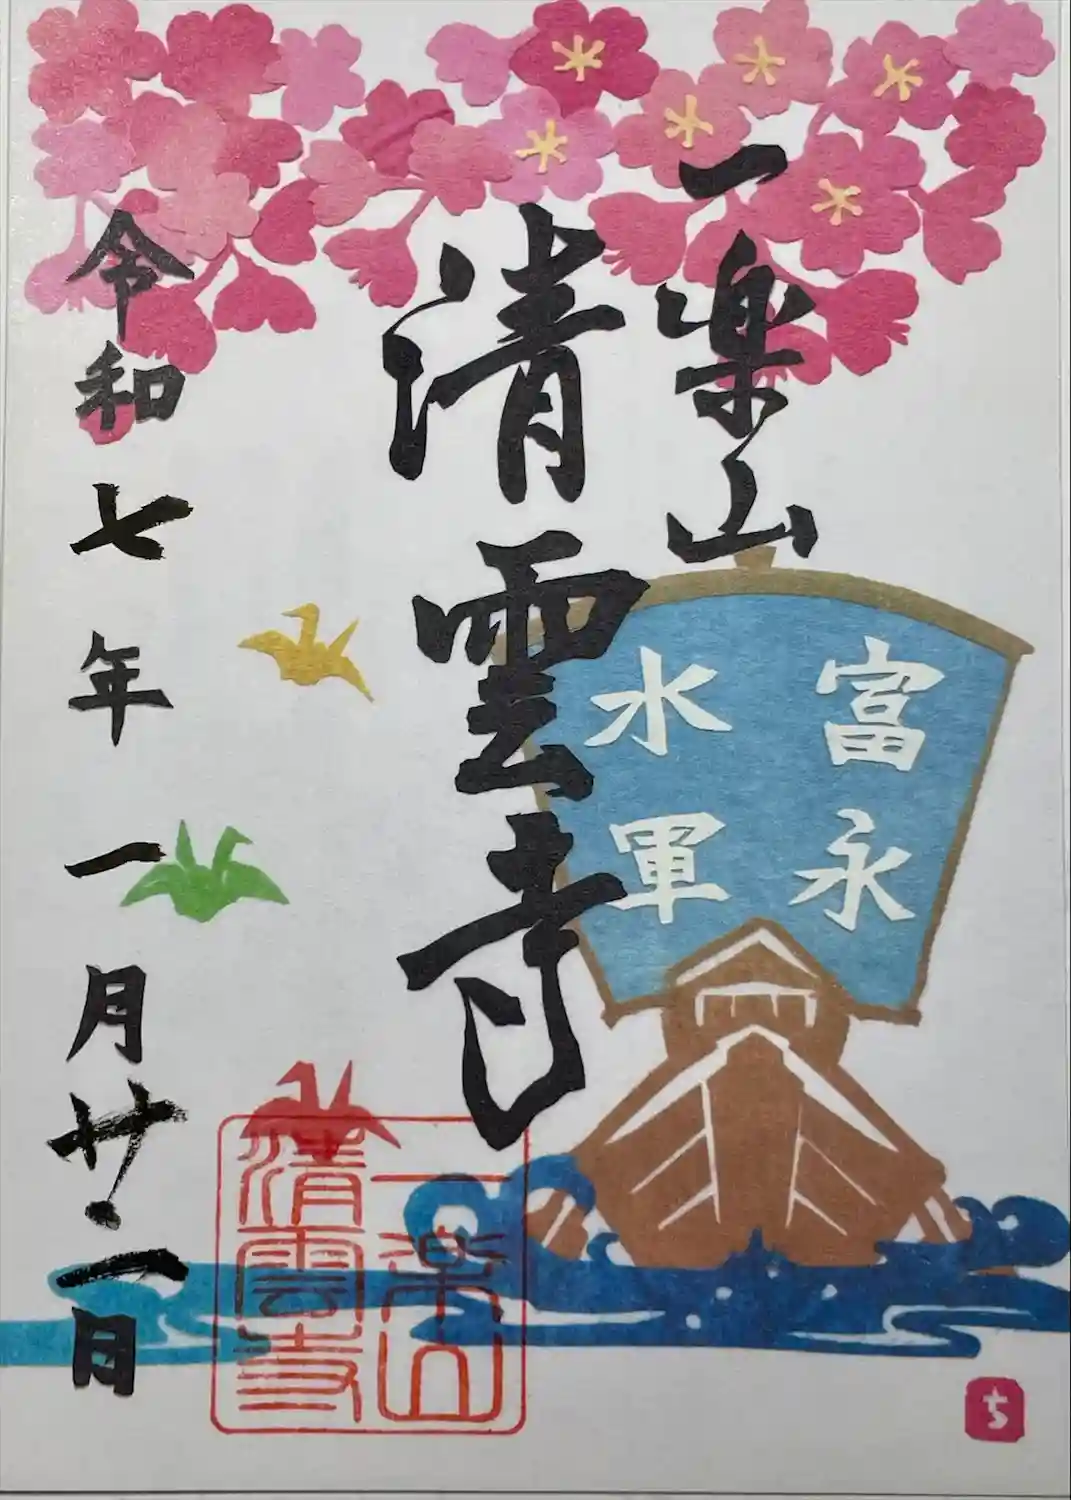 一楽山
清雲寺
令和七年一月廿一日
富永
水軍
一楽山
清雲寺
ち